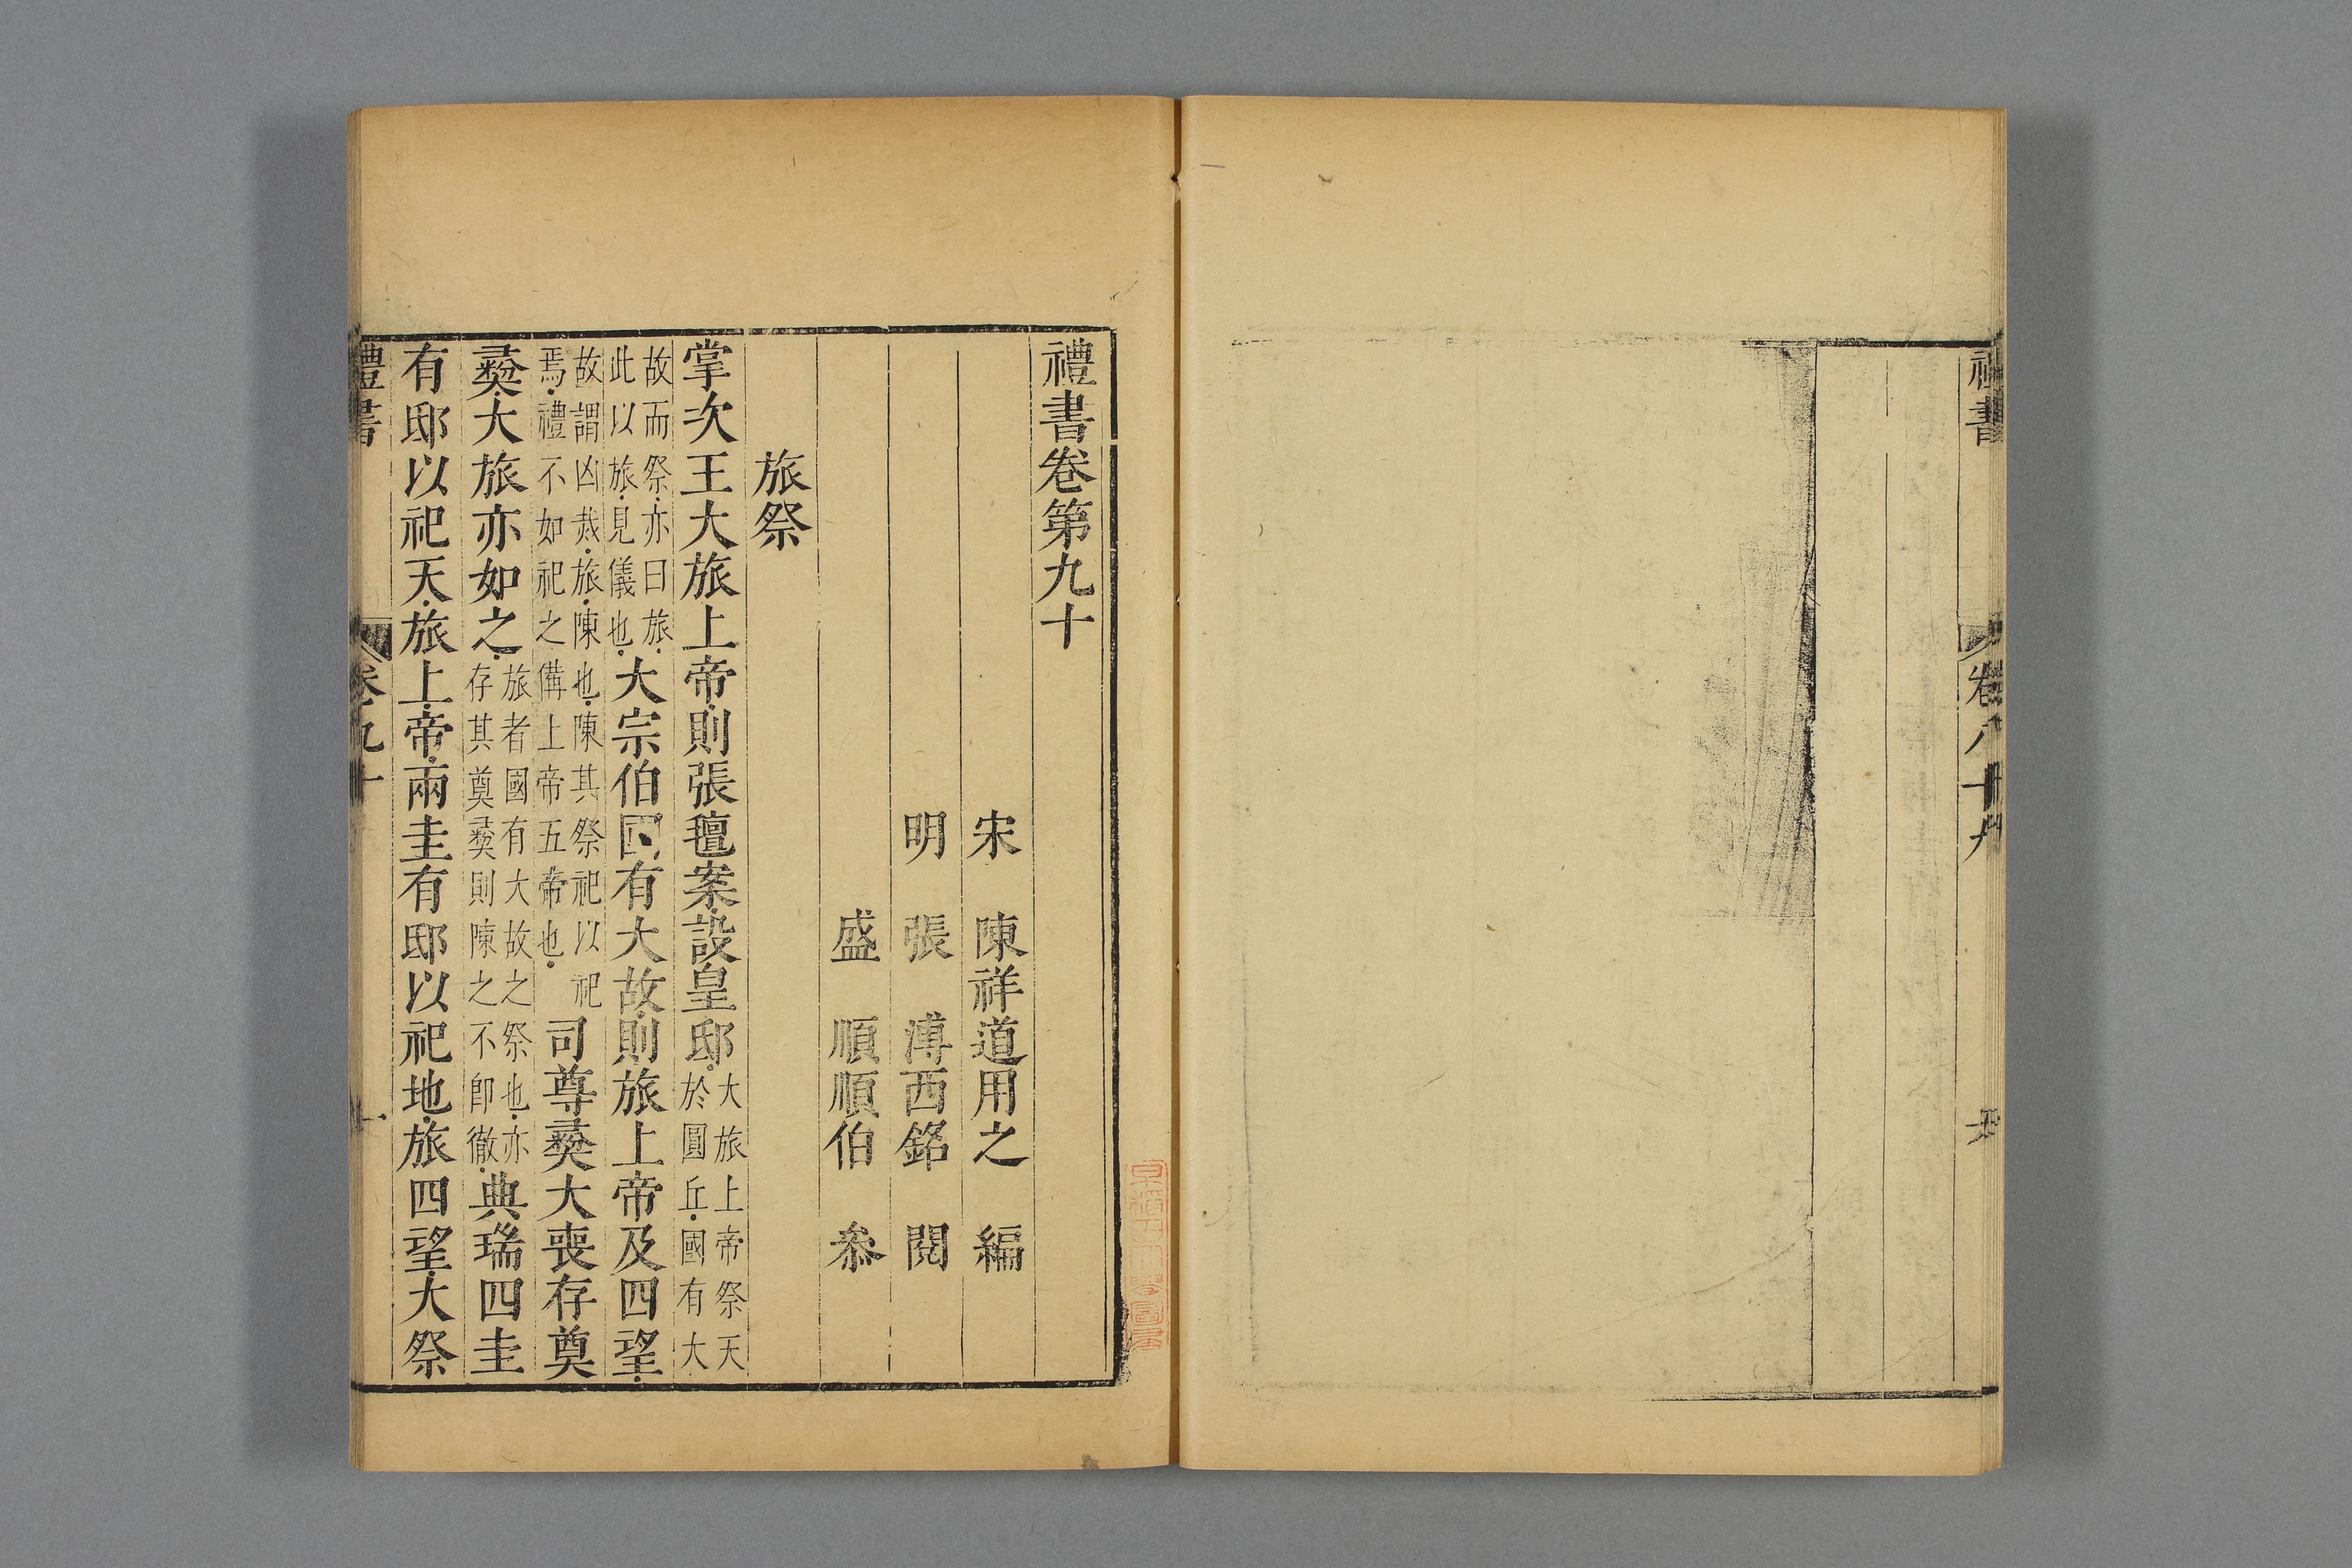 禮書
卷八十九
禮書卷第九十
宋 陳祥道用之 編
明 張 溥西銘 閱
盛 順順伯 叅
旅祭
掌次王大旅上帝則張氊案設皇邸大旅上帝祭天於圓丘國有大
故而祭亦曰旅此以旅見儀也大宗伯國有大故則旅上帝及四望
故謂凶烖旅陳也陳其祭祀以祀焉禮不如祀之備上帝五帝也司尊彝大喪存奠
彝大旅亦如之旅者國有大故之祭也亦存其奠彝則陳之不卽徹典瑞四圭
有邸以祀天旅上帝兩圭有邸以祀地旅四望大祭
禮書
卷九十
一